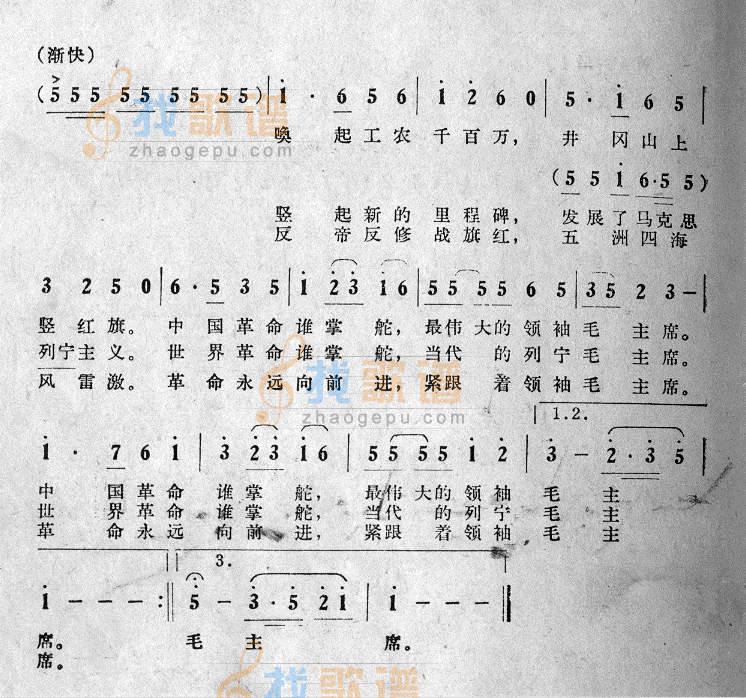 (渐快)
(5 5 5 5 5 5 5 5 5) | 1 · 6 5 6 | 1 2 6 0 | 5 · 1 6 5 |
找歌谱
zhaogepu.com
唤 起工农 千百万, 井 冈山上
(5 5 1 6·5 5)
竖 起新的 里程碑, 发展了马克思
反 帝反修 战旗红, 五 洲四海
3 2 5 0 | 6 · 5 3 5 | 1 2 3 1 6 | 5 5 5 5 6 5 | 3 5 2 3 – |
竖红旗。 中 国革命 谁掌 舵, 最伟大的 领袖毛 主席。
列宁主义。 世 界革命 谁掌 舵, 当代 的 列宁毛 主席。
风雷激。 革 命永远 向前 进, 紧跟 着 领袖毛 主席。
找歌谱
zhaogepu.com
1.2.
1 · 7 6 1 | 3 2 3 1 6 | 5 5 5 5 1 2 | 3 – 2 · 3 5 |
中 国革命 谁掌 舵, 最伟大的 领袖 毛 主
世 界革命 谁掌 舵, 当代 的列宁 毛 主
革 命永远 向前 进, 紧跟 着领袖 毛 主
3.
1 – – – :‖ 5 – 3 · 5 2 1 | 1 – – – ‖
席。 毛 主 席。
席。
找歌谱